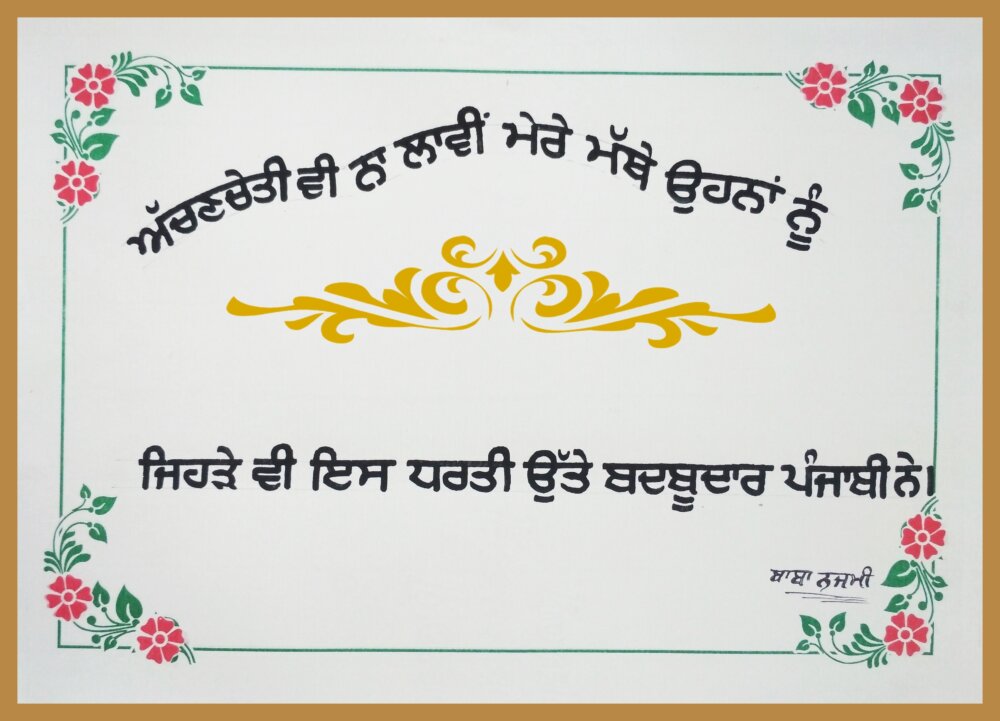 ਅੱਚਣਚੇਤੀ ਵੀ ਨਾ ਲਾਵੀਂ ਮੇਰੇ ਮੱਥੇ ਉਹਨਾਂ ਨੂੰ
ਜਿਹੜੇ ਵੀ ਇਸ ਧਰਤੀ ਉੱਤੇ ਬਦਬੂਦਾਰ ਪੰਜਾਬੀ ਨੇ।
ਬਾਬਾ ਨਜਮੀ